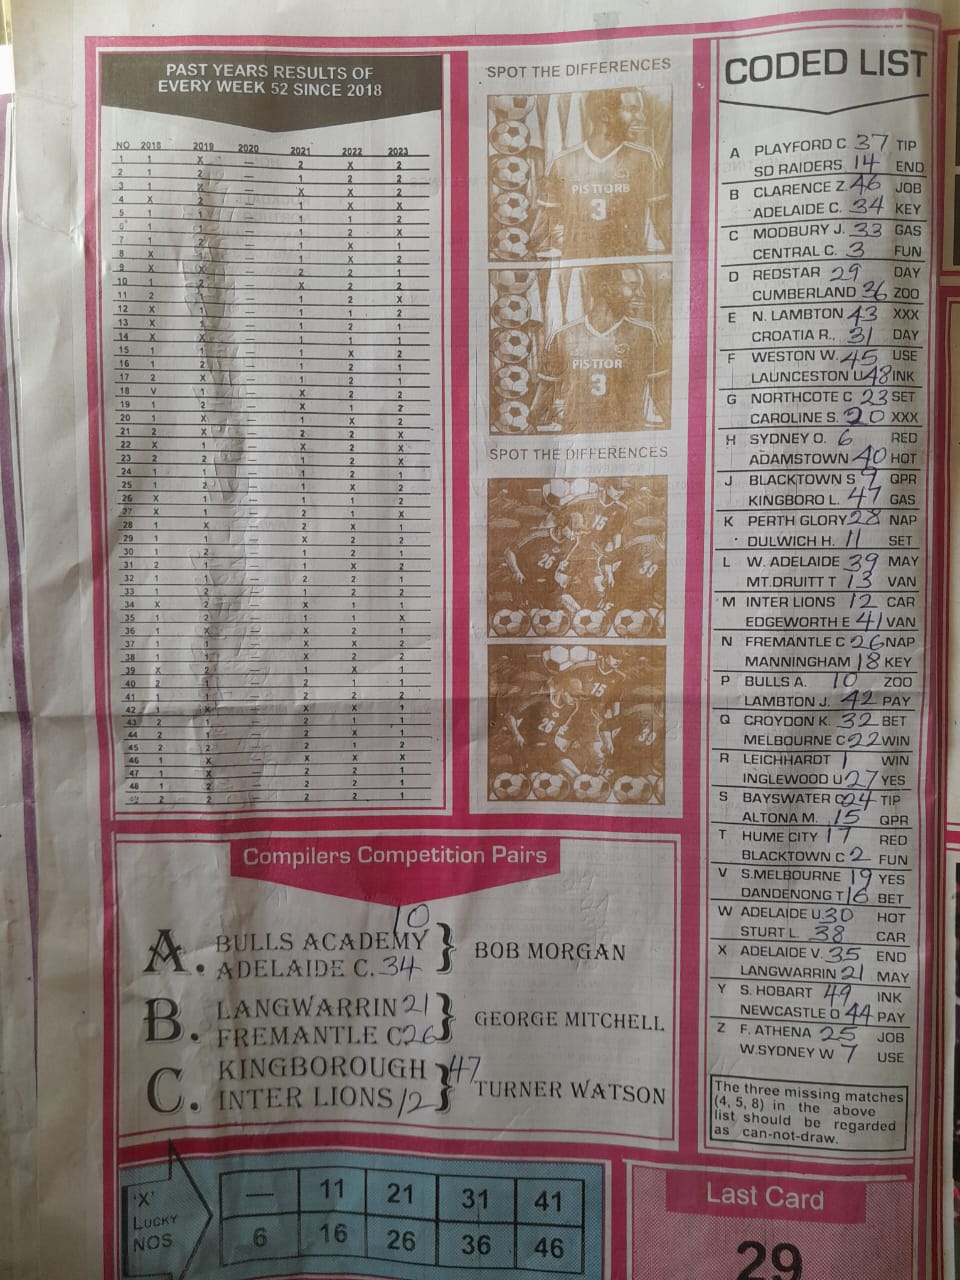 PAST YEARS RESULTS OF
EVERY WEEK 52 SINCE 2018
NO 2018 2019 2020 2021 2022 2023
1 1 X — 2 X 2
2 1 2 — 1 2 2
3 1 X — X X 2
4 X 2 — 1 X X
5 1 1 — 1 1 2
6 1 1 — 1 2 X
7 1 2 — 1 X 1
8 X 1 — 1 X 2
9 X X — 2 2 1
10 1 2 — X 2 2
11 2 1 — 1 2 X
12 X 1 — 1 1 2
13 X 1 — 1 2 1
14 X X — 1 1 1
15 1 1 — 1 X 2
16 1 2 — 1 2 1
17 2 X — 1 2 1
18 V 1 — X 2 2
19 1 2 — X 1 2
20 1 X — 1 X 2
21 2 X — 2 2 X
22 X 1 — X 2 X
23 2 2 — 1 2 X
24 1 1 — 1 2 1
25 1 2 — 1 X 2
26 X 1 — 1 1 2
27 X 1 — 2 1 X
28 1 X — 2 X 1
29 1 1 — X 2 2
30 1 2 — 1 2 1
31 2 1 — 1 X 2
32 1 1 — 2 2 1
33 1 2 — 1 2 2
34 X 2 — X 1 1
35 1 2 — 1 1 X
36 1 X — X 2 1
37 1 1 — X X 2
38 1 1 — X 2 2
39 X 2 — 1 X 1
40 2 1 — 2 1 1
41 1 1 — 2 2 2
42 1 X — X X 1
43 2 1 — 2 X 1
44 2 1 — 2 X 1
45 2 2 — 2 1 2
46 1 X — X X X
47 1 X — 2 2 1
48 1 2 — 2 2 1
49 2 2 — 2 2 1
SPOT THE DIFFERENCES
PISTTORB
3
PISTTOR
3
SPOT THE DIFFERENCES
15
26
39
15
26
39
CODED LIST
A PLAYFORD C. 37 TIP
SD RAIDERS 14 END
B CLARENCE Z. 46 JOB
ADELAIDE C. 34 KEY
C MODBURY J. 33 GAS
CENTRAL C. 3 FUN
D REDSTAR 29 DAY
CUMBERLAND 36 ZOO
E N. LAMBTON 43 XXX
CROATIA R.. 31 DAY
F WESTON W. 45 USE
LAUNCESTON U 48 INK
G NORTHCOTE C 23 SET
CAROLINE S. 20 XXX
H SYDNEY O. 6 RED
ADAMSTOWN 40 HOT
J BLACKTOWN S 9 QPR
KINGBORO L. 47 GAS
K PERTH GLORY 28 NAP
DULWICH H. 11 SET
L W. ADELAIDE 39 MAY
MT.DRUITT T 13 VAN
M INTER LIONS 12 CAR
EDGEWORTH E 41 VAN
N FREMANTLE C 26 NAP
MANNINGHAM 18 KEY
P BULLS A. 10 ZOO
LAMBTON J. 42 PAY
Q CROYDON K. 32 BET
MELBOURNE C 22 WIN
R LEICHHARDT 1 WIN
INGLEWOOD U 27 YES
S BAYSWATER C 24 TIP
ALTONA M. 15 QPR
T HUME CITY 17 RED
BLACKTOWN C 2 FUN
V S.MELBOURNE 19 YES
DANDENONG T 16 BET
W ADELAIDE U. 30 HOT
STURT L. 38 CAR
X ADELAIDE V. 35 END
LANGWARRIN 21 MAY
Y S. HOBART 49 INK
NEWCASTLE O 44 PAY
Z F. ATHENA 25 JOB
W.SYDNEY W 7 USE
The three missing matches
(4, 5, 8) in the above
list should be regarded
as can-not-draw.
Compilers Competition Pairs
10
A. BULLS ACADEMY
ADELAIDE C. 34 } BOB MORGAN
B. LANGWARRIN 21
FREMANTLE C 26 } GEORGE MITCHELL
C. KINGBOROUGH 47
INTER LIONS 12 } TURNER WATSON
'X'
LUCKY
NOS
— 11 21 31 41
6 16 26 36 46
Last Card
29